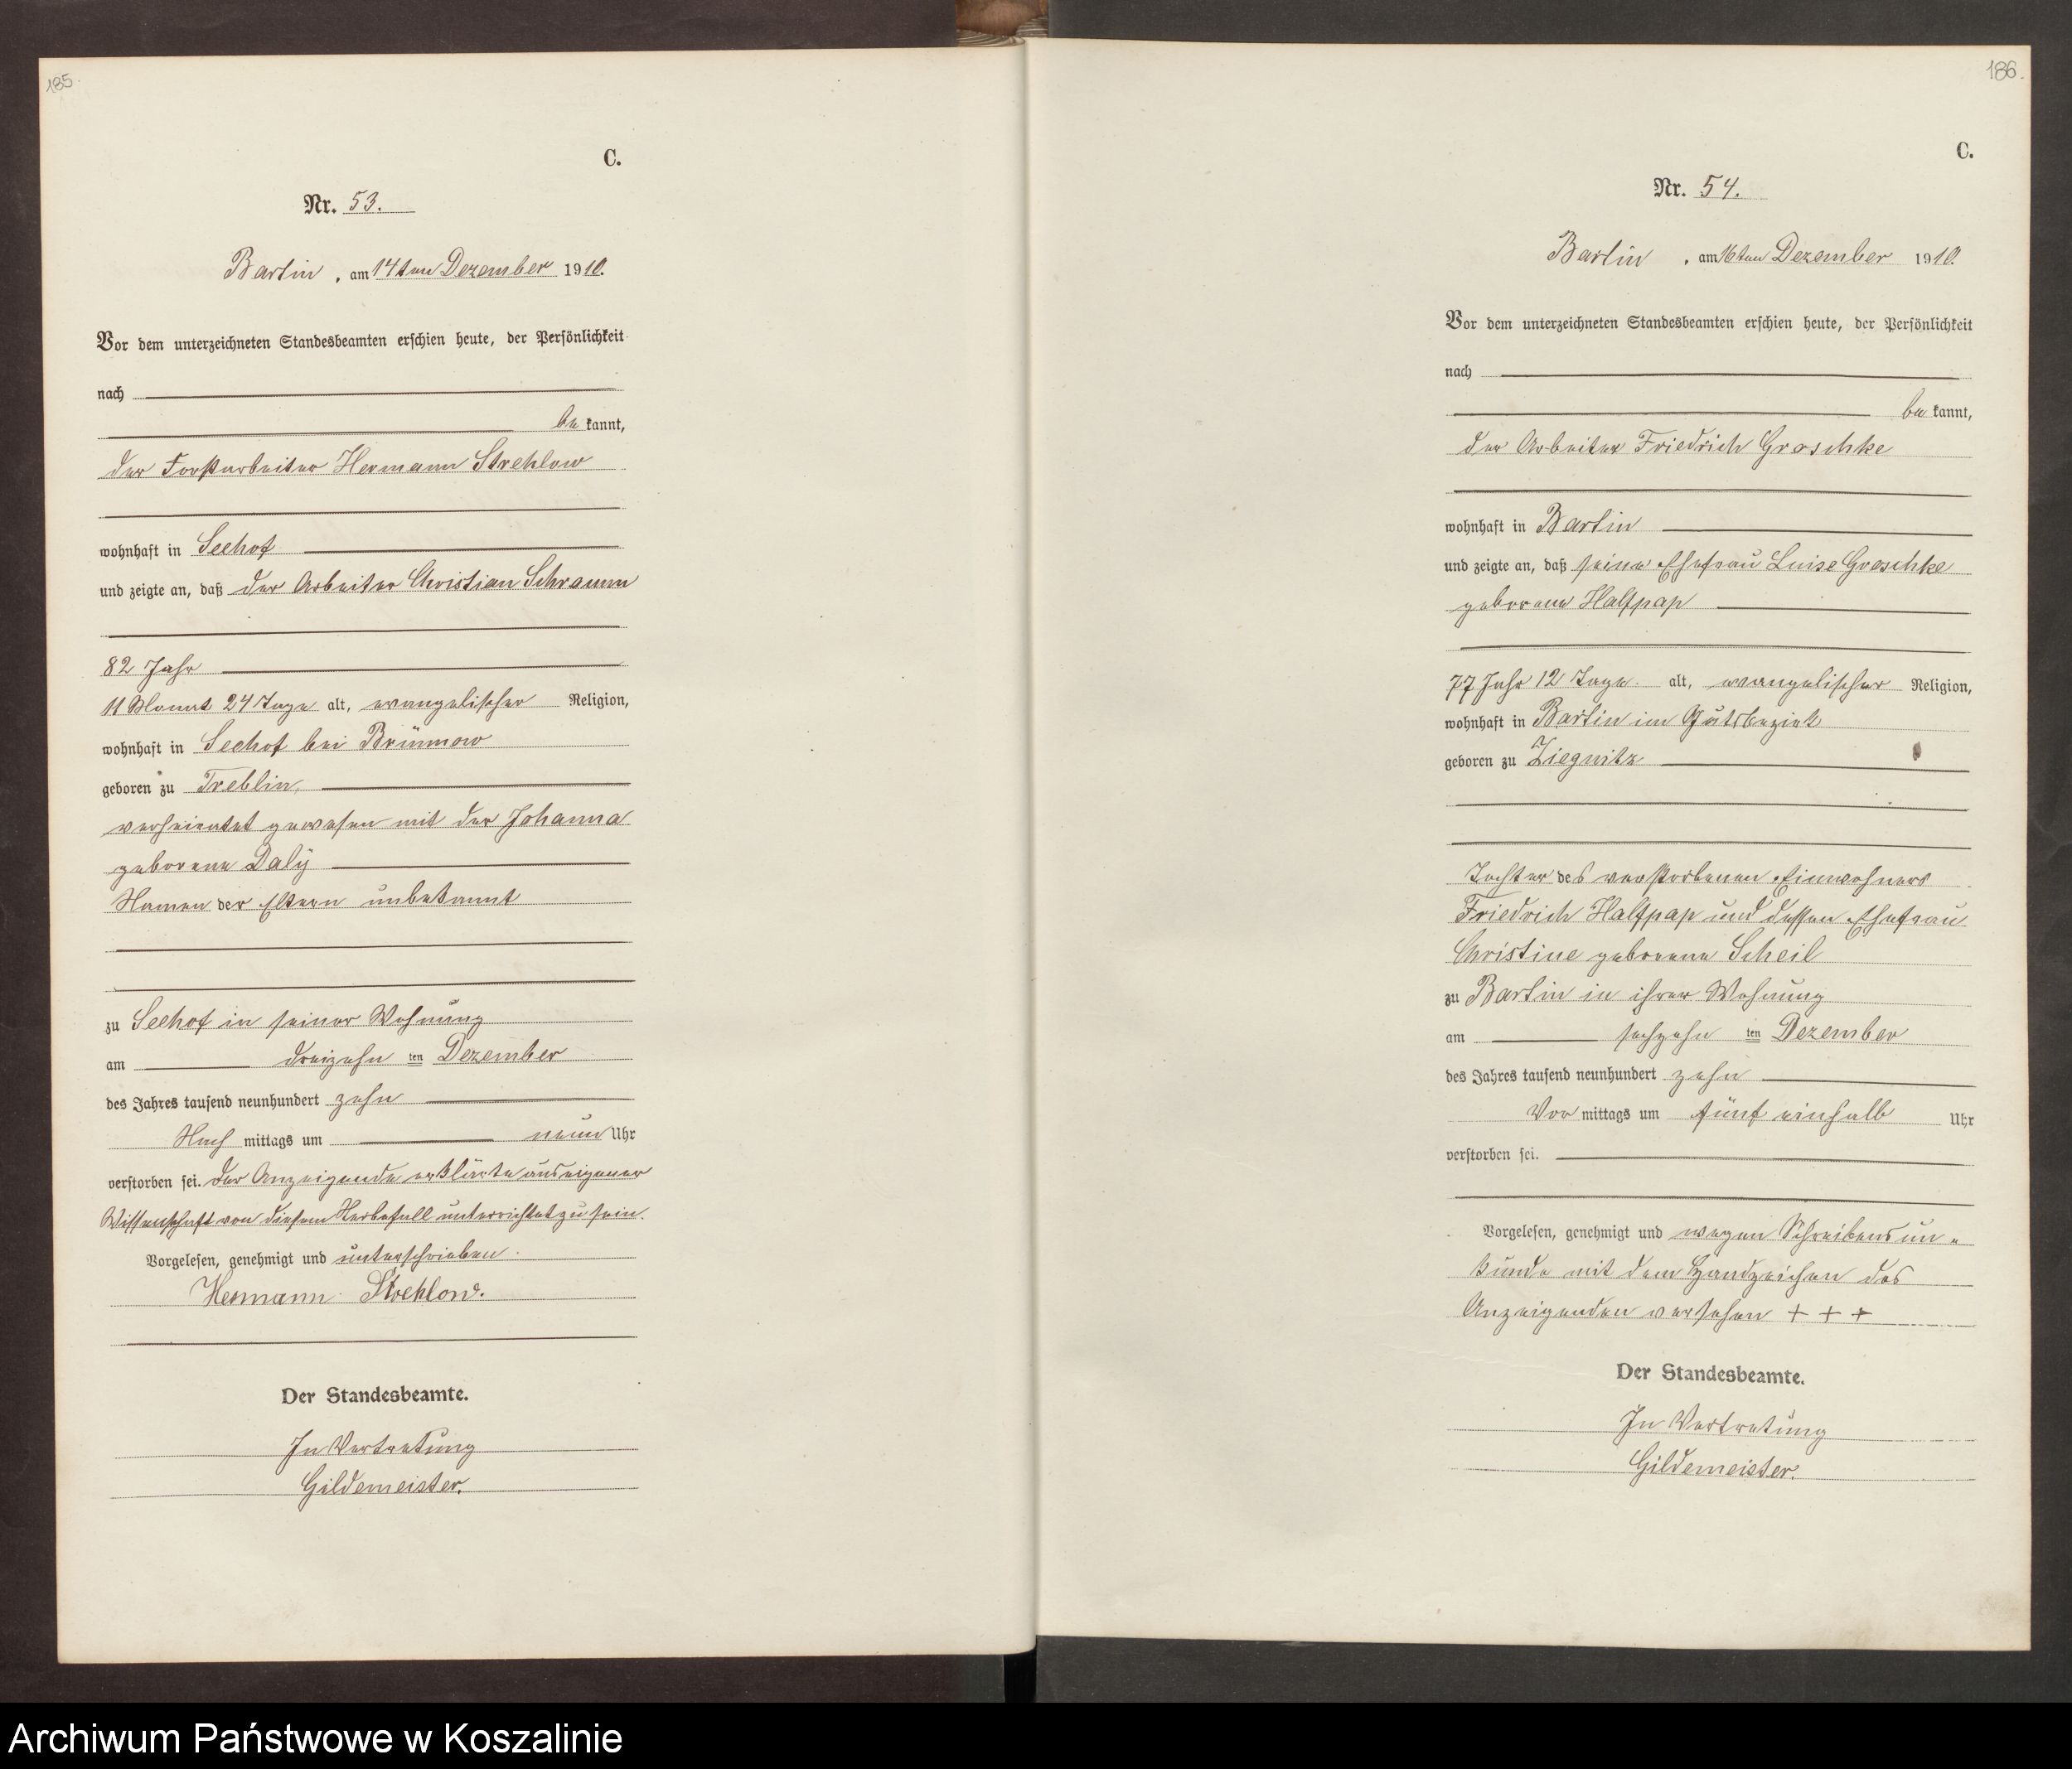 185.
C.
Nr. 53.
Bartin, am 14ten Dezember 1910.
Vor dem unterzeichneten Standesbeamten erschien heute, der Persönlichkeit
nach
be kannt,
der Forstarbeiter Hermann Strehlow
wohnhaft in Seehof
und zeigte an, daß der Arbeiter Christian Schramm
82 Jahr
11 Monat 24 Tage alt, evangelischer Religion,
wohnhaft in Seehof bei Brünnow
geboren zu Treblin,
verheiratet gewesen mit der Johanna
geborene Daly
Namen der Eltern unbekannt
zu Seehof in seiner Wohnung
am dreizehn ten Dezember
des Jahres tausend neunhundert zehn
Nach mittags um neun Uhr
verstorben sei. Der Anzeigende erklärte aus eigener
Wissenschaft von diesem Sterbefall unterrichtet zu sein.
Vorgelesen, genehmigt und unterschrieben.
Hermann Strehlow.
Der Standesbeamte.
In Vertretung
Gildemeister.
186.
C.
Nr. 54.
Bartin, am 16ten Dezember 1910.
Vor dem unterzeichneten Standesbeamten erschien heute, der Persönlichkeit
nach
be kannt,
der Arbeiter Friedrich Groschke
wohnhaft in Bartin
und zeigte an, daß seine Ehefrau Luise Groschke
geborene Halfpap
77 Jahr 12 Tage alt, evangelischer Religion,
wohnhaft in Bartin im Gutsbezirk
geboren zu Ziegnitz
Tochter des verstorbenen Einwohners
Friedrich Halfpap und dessen Ehefrau
Christine geborene Scheil
zu Bartin in ihrer Wohnung
am sechzehn ten Dezember
des Jahres tausend neunhundert zehn
Vor mittags um fünf einhalb Uhr
verstorben sei.
Vorgelesen, genehmigt und wegen Schreibensun-
kunde mit dem Handzeichen des
Anzeigenden versehen + + +
Der Standesbeamte.
In Vertretung
Gildemeister.
Archiwum Państwowe w Koszalinie